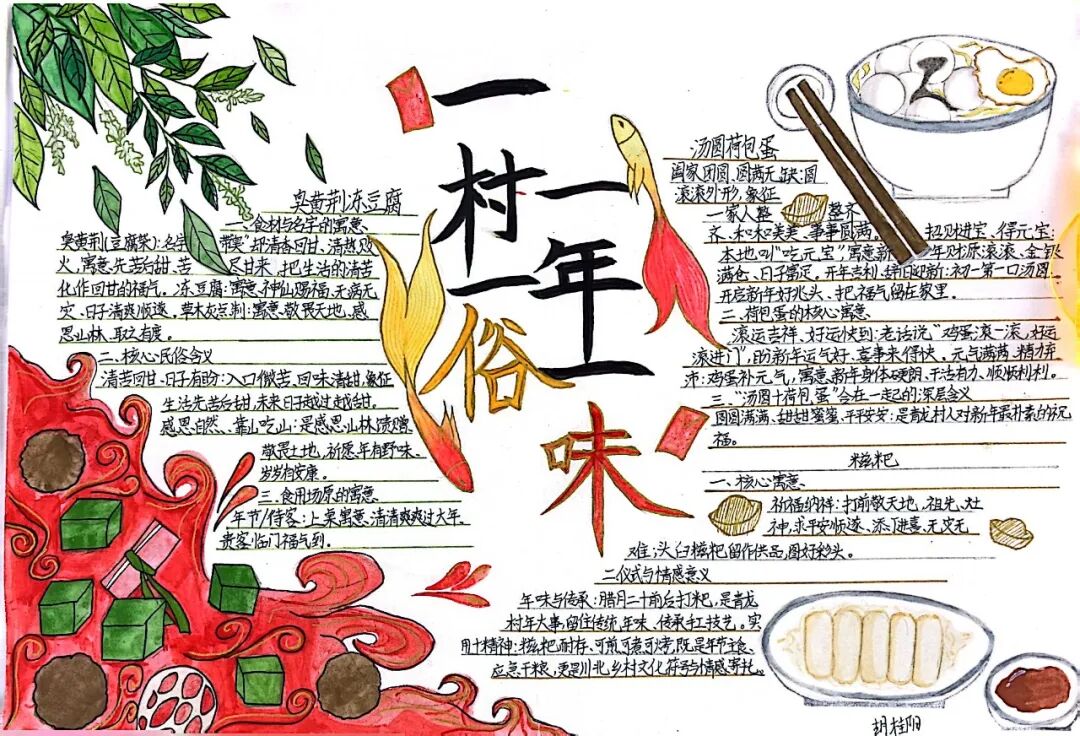 一村一俗
一年一味
臭黄荆冻豆腐
一、食材与名字的寓意
臭黄荆(豆腐柴):名字"带臭"却清香回甘、清热败
火,寓意先苦后甜、苦尽甘来,把生活的清苦
化作回甘的福气。冻豆腐:寓意神仙赐福、无病无
灾、日子清爽顺遂。草木灰点制:寓意敬畏天地、感
恩山林、取之有度。
二、核心民俗含义
清苦回甘、日子有盼:入口微苦、回味清甜,象征
生活先苦后甜,未来日子越过越甜。
感恩自然、靠山吃山:是感恩山林馈赠、
敬畏土地,祈愿年有野味、
岁岁有安康。
三、食用场景的寓意
年节/待客:上桌寓意、清清爽爽过大年、
贵客临门福气到.
汤圆荷包蛋
阖家团圆、圆满无缺:圆
滚滚外形,象征
一家人整整齐
齐、和和美美、事事圆满。招财进宝、得元宝:
本地叫"吃元宝"寓意新年财源滚滚、金银
满仓、日子富足。开年吉利、辞旧迎新:初一第一口汤圆
开启新年好兆头、把福气留在家里。
二、荷包蛋的核心寓意
滚运吉祥、好运快到:老话说"鸡蛋滚一滚,好运
滚进门",盼新年运气好、喜事来得快、元气满满、精力充
沛:鸡蛋补元气,寓意新年身体硬朗、干活有力、顺顺利利。
三、"汤圆十荷包蛋"合在一起的深层含义
圆圆满满、甜甜蜜蜜、平平安安:是青龙村人对新年最朴素的祝
福。
糍粑
一、核心寓意
祈福纳祥:打前敬天地、祖先、灶
神,求平安顺遂、添丁进喜、无灾无
难;头臼糍粑留作供品,图好彩头。
二仪式与情感意义
年味与传承:腊月二十前后打粑,是青龙
村年大事,留住传统年味、传承手工技艺。实
用十精神:糍粑耐存、可煎可煮可烤,既是年节主食、
应急干粮,更是川北乡村文化符号与情感寄托。
胡桂阳